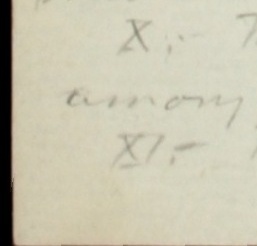 X.-
among
XI.-